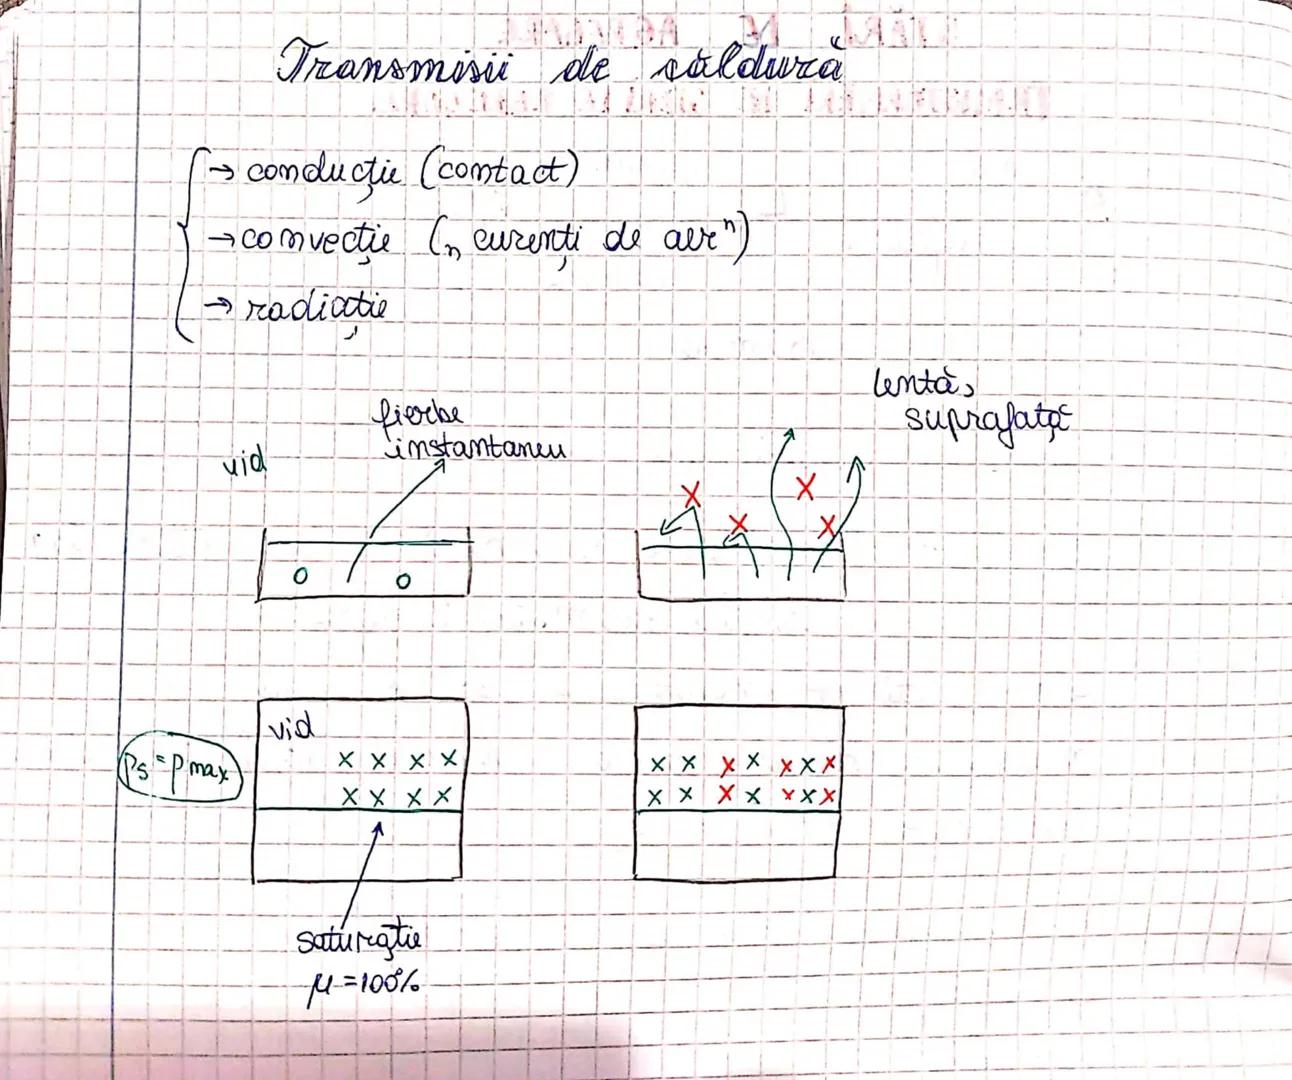 Transmisii de căldură
→ conducție (contact)
→ convecție („curenți de aer”)
→ radiație
lentă,
suprafață
fierbe
instantaneu
vid
vid
ps = pmax
saturație
μ = 100%